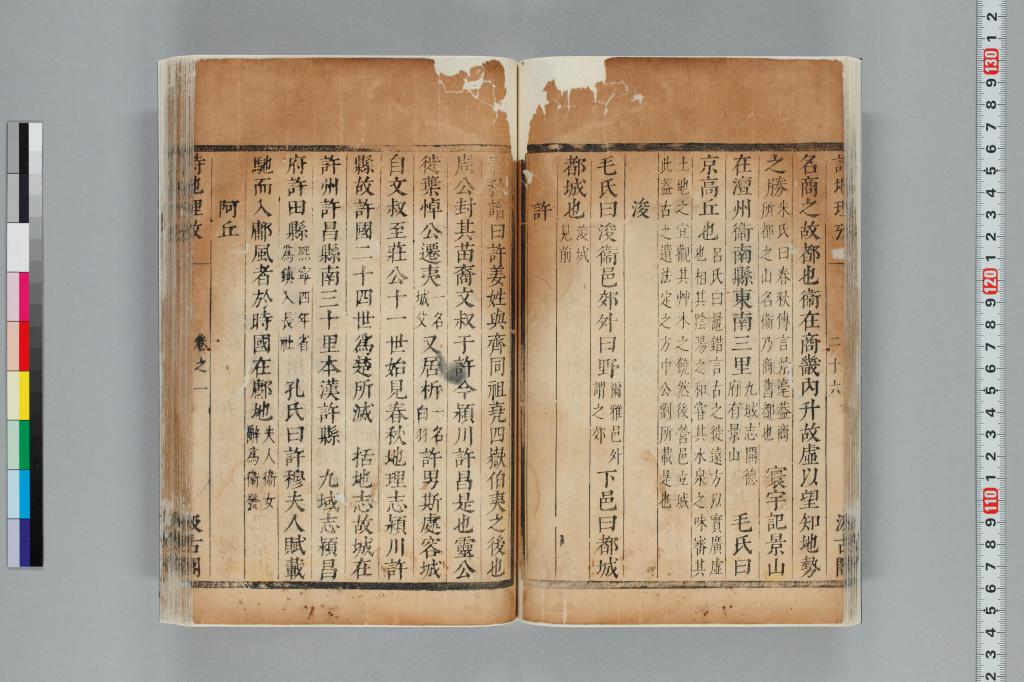 名商之故都也衞在商畿內升故虛以望知地勢
之勝朱氏曰春秋傳言景亳蓋商所都之山名衞乃商舊都也 寰宇記景山
在澶州衞南縣東南三里九域志開德府有景山 毛氏曰
京高丘也呂氏曰鼂錯言古之徙遠方以實廣虛也相其陰陽之和嘗其水泉之味審其
土地之宜觀其艸木之饒然後營邑立城此蓋古之遺法定之方中公劉所載是也
浚
毛氏曰浚衞邑郊外曰野爾雅邑外謂之郊 下邑曰都城
都城也浚城見前
許
譜曰許姜姓與齊同祖堯四嶽伯夷之後也
周公封其苗裔文叔于許今潁川許昌是也靈公
徙葉悼公遷夷一名城父又居析一名白羽許男斯處容城
自文叔至莊公十一世始見春秋地理志潁川許
縣故許國二十四世爲楚所滅 括地志故城在
許州許昌縣南三十里本漢許縣 九域志潁昌
府許田縣熙寧四年省爲鎮入長社 孔氏曰許穆夫人賦載
馳而入鄘風者於時國在鄘地夫人衞女辭爲衞發
阿丘
詩地理攷 卷之一 汲古閣